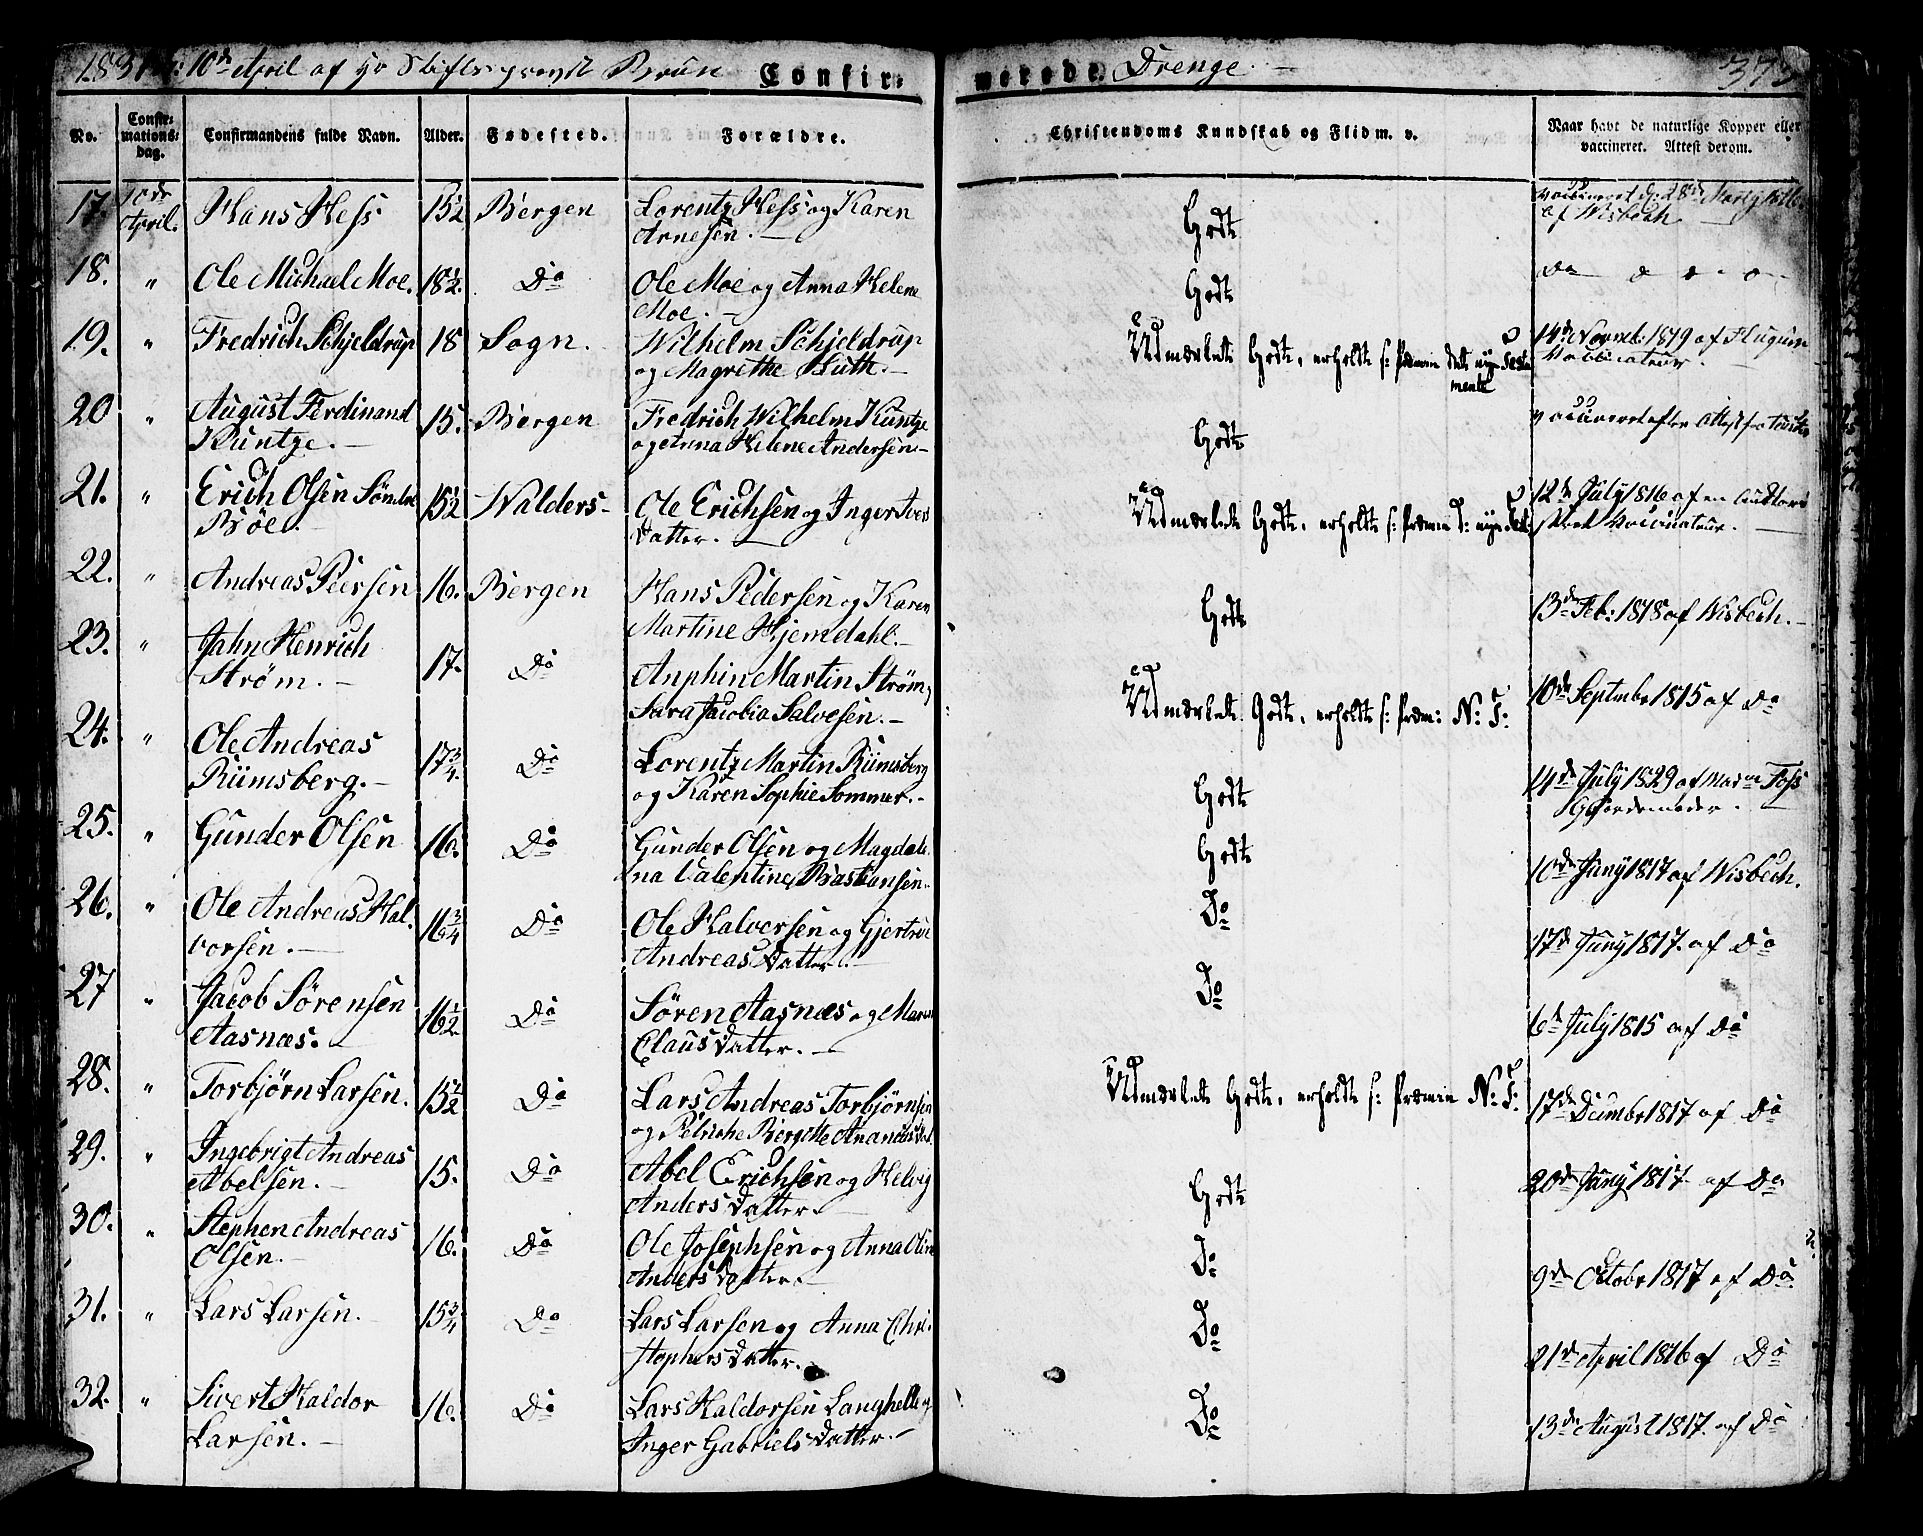 1831 d: 10de April af Hr Stiftsprovst Bruun Confir-
merede Drenge. 373
No.
Confir-
mations-
dag.
Confirmandens fulde Navn.
Alder.
Fødested.
Forældre.
Christendoms Kundskab og Flid m. v.
Naar havt de naturlige Kopper eller
vaccineret. Attest derom.
17. 10de April. Hans Hess 15½ Bergen Lorentz Hess og Karen
Arnesen. Godt vaccineret d: 28de Martz 1816
af Wisbech
18. " Ole Michael Moe. 18½. Do Ole Moe og Anna Helene
Moe. Godt Do
19. " Fredrich Schjeldrup 18 Sogn. Wilhelm Schjeldrup
og Magrethe Luth. Udmærket Godt, erholdt s: Præmie det nye Testa
mente 14de Novmb: 1819 af Flugum
Vaccinateur.
20 " August Ferdinand
Kuntze. 15. Bergen Fredrich Wilhelm Kuntze
og Anna Helene Andersen Godt vaccineret efter Attest fra
21. " Erich Olsen Søndre
Bøe. 15½ Walders Ole Erichsen og Inger Ivers
Datter. Udmærket Godt, erholdt s: Præmie d: nye Test: 12de July 1816 af en
Vaccinateur.
22. " Andreas Peersen 16. Bergen Hans Pedersen og Karen
Martine Hjemdahl. Godt 13de Feb: 1818 af Wisbech.
23. " Jahn Henrich
Strøm. 17. Do Anphin Martin Strøm,
Sara Jacobia Salvesen. Udmærket Godt, erholdt s: Præm: N: T: 10de Septmbr 1815 af Do
24. " Ole Andreas
Rumsberg. 17¾. Do Lorentz Martin Rumsberg
og Karen Sophie Sommer. Godt 14de July 1829 af Madme Foss
Gjordemoder.
25. " Gunder Olsen 16. Do Gunder Olsen og Magdale
na Valentine Bastiansen Godt 10de Juny 1817 af Wisbech.
26. " Ole Andreas Hal
vorsen. 16¾ Do Ole Halversen og Gjertrue
Andreas Datter. Do 17de Juny 1817. af Do
27 " Jacob Sørensen
Aasnæs. 16½ Do Søren Aasnæs og Maren
Claus Datter. Do 6de July 1815 af Do
28. " Torbjørn Larsen. 15½ Do Lars Andreas Torbjørnsen
og Petriche Bergitte Udmærket Godt, erholdt s: Præmie N: T: 17de Decembr 1817 af Do
29. " Ingebrigt Andreas
Abelsen. 15. Do Abel Erichsen og Helvig
Anders Datter. Godt 20de Juny 1817 af Do
30. " Stephen Andreas
Olsen. 16. Do Ole Josephsen og Anna Oline
Anders Datter. Do 9de Octobr 1817 af Do
31. " Lars Larsen. 15¾ Do Lars Larsen og Anna Chri
stophers Datter. Do 21de April 1816 af Do
32. " Sivert Haldor
Larsen. 16. Do Lars Haldorsen Langhelle og
Inger Gabriels Datter. Do 13de August 1817 af Do